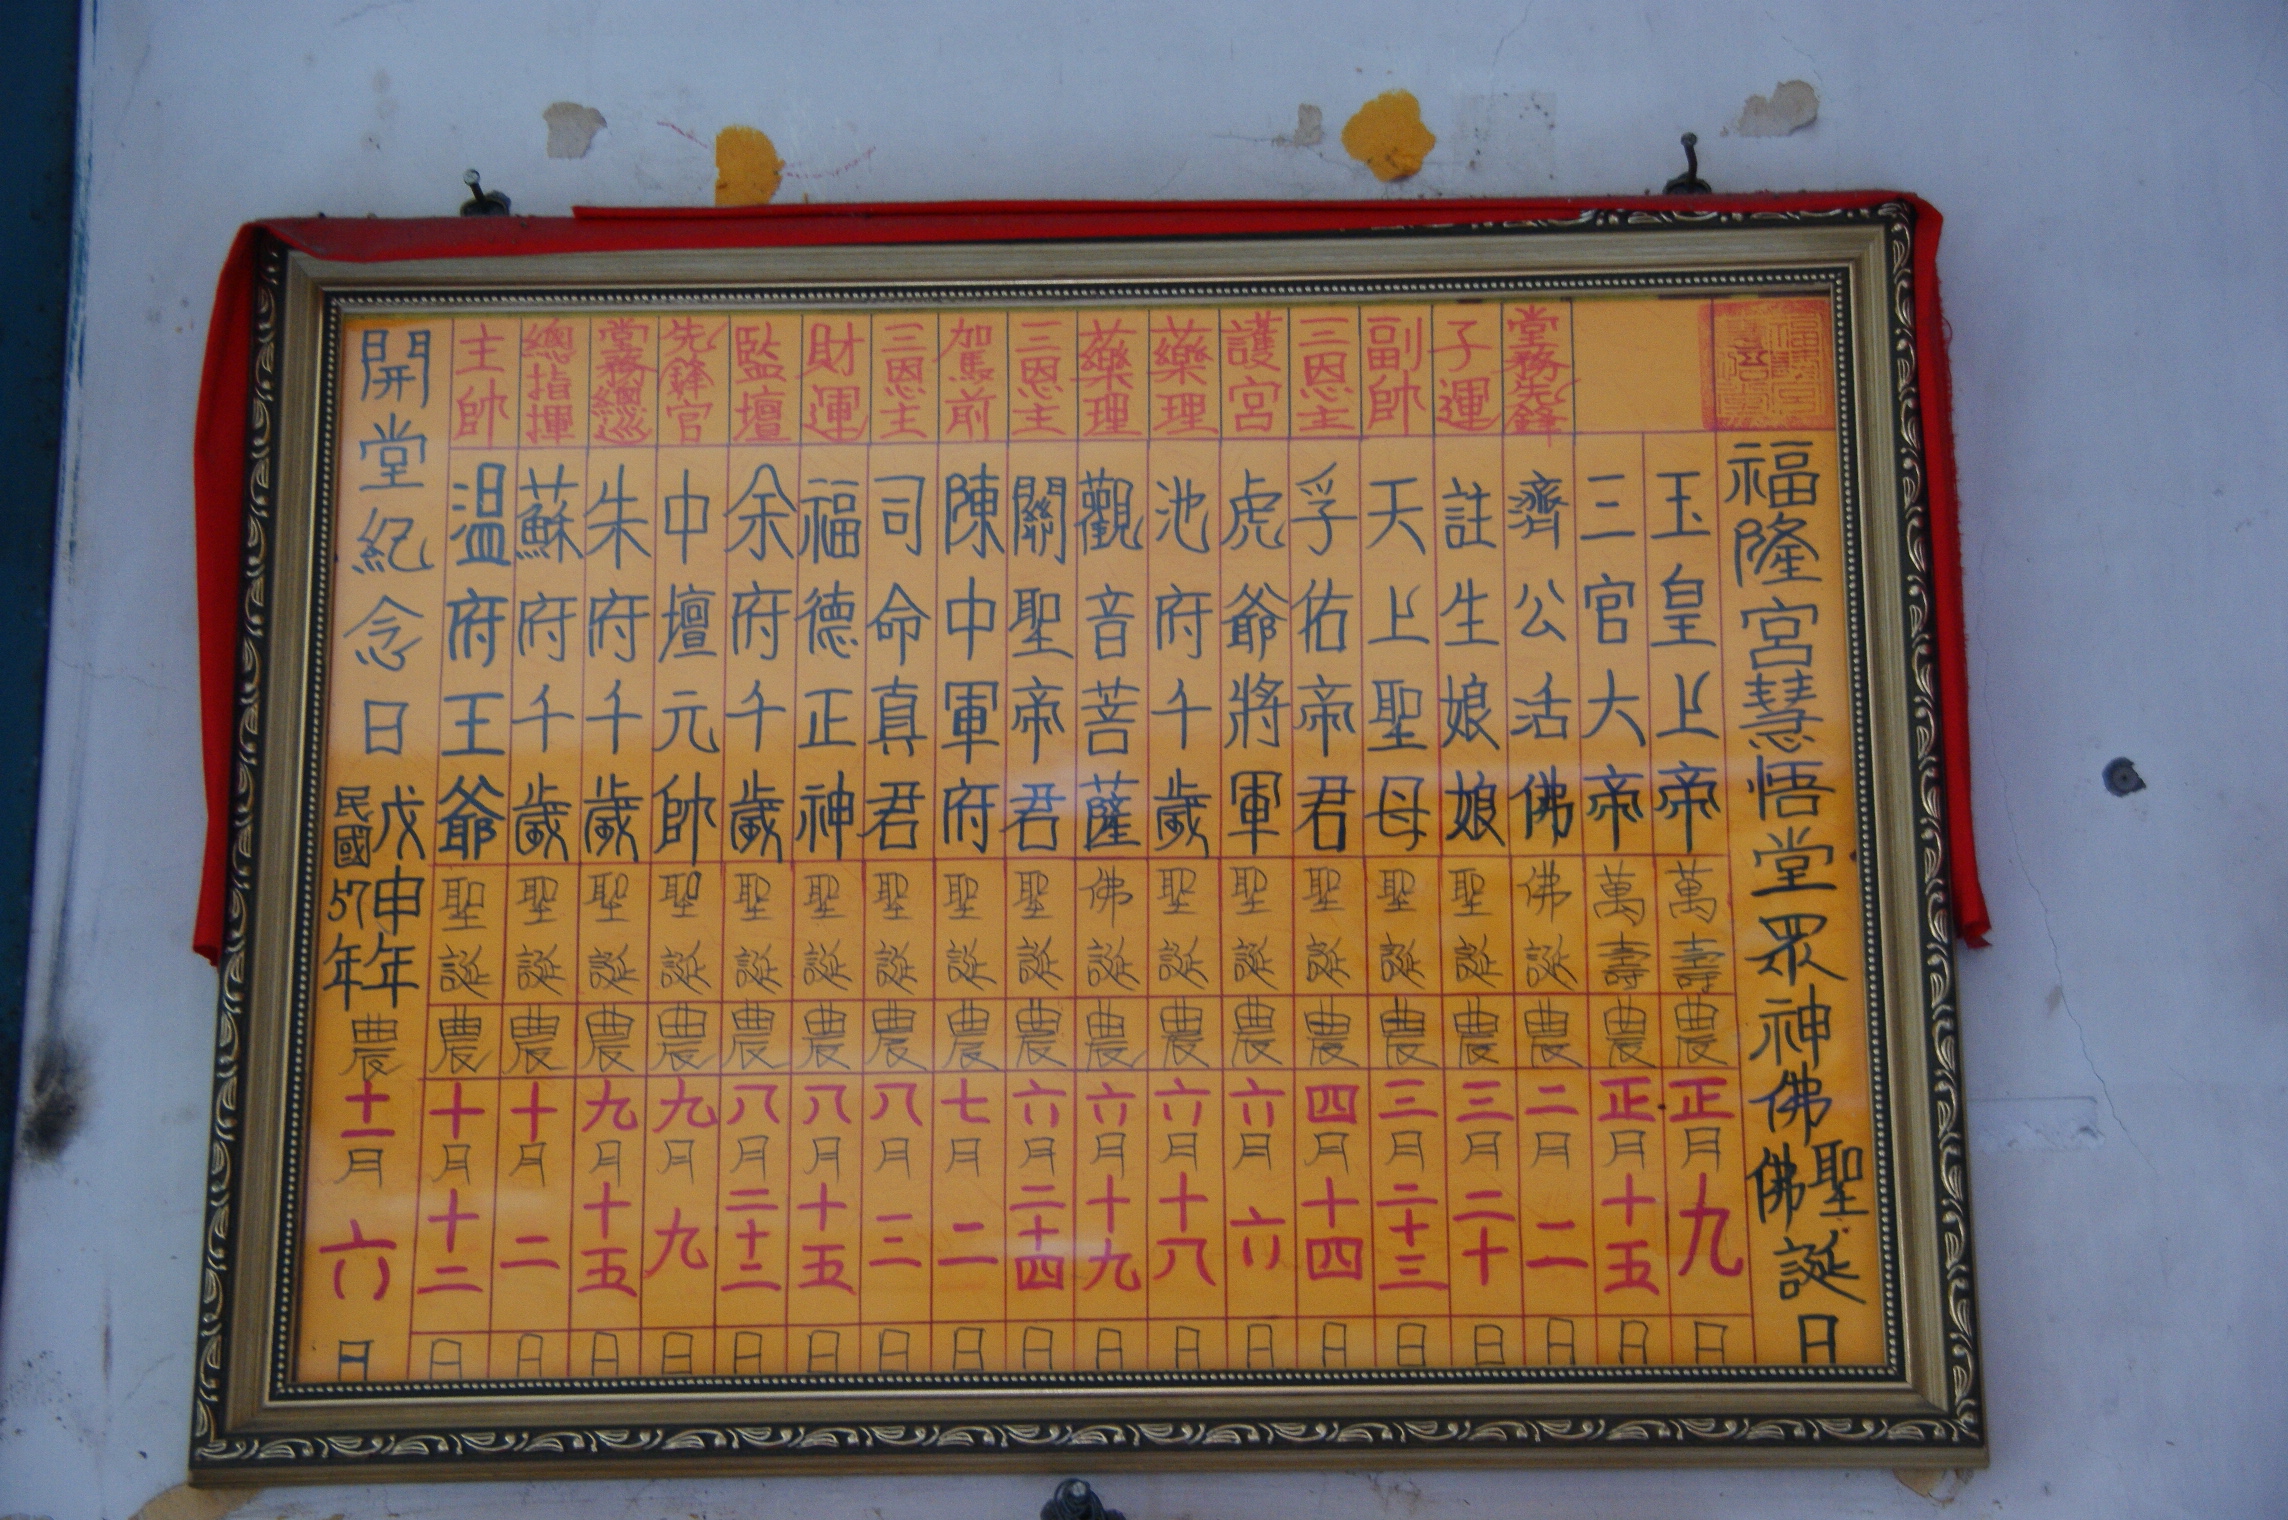 福隆宮慧悟堂眾神佛聖佛誕日
玉皇上帝萬壽農正月九日
三官大帝萬壽農正月十五日
堂務先鋒濟公活佛佛誕農二月二日
子運註生娘娘聖誕農三月二十日
副帥天上聖母聖誕農三月二十三日
三恩主孚佑帝君聖誕農四月十四日
護宮虎爺將軍聖誕農六月六日
藥理池府千歲聖誕農六月十八日
藥理觀音菩薩佛誕農六月十九日
三恩主關聖帝君聖誕農六月二十四日
駕前陳中軍府聖誕農七月二日
三恩主司命真君聖誕農八月三日
財運福德正神聖誕農八月十五日
監壇余府千歲聖誕農八月二十三日
先鋒官中壇元帥聖誕農九月九日
堂務總巡朱府千歲聖誕農九月十五日
總指揮蘇府千歲聖誕農十月二日
主帥温府王爺聖誕農十月十二日
開堂紀念日戊申年民國57年農十一月六日